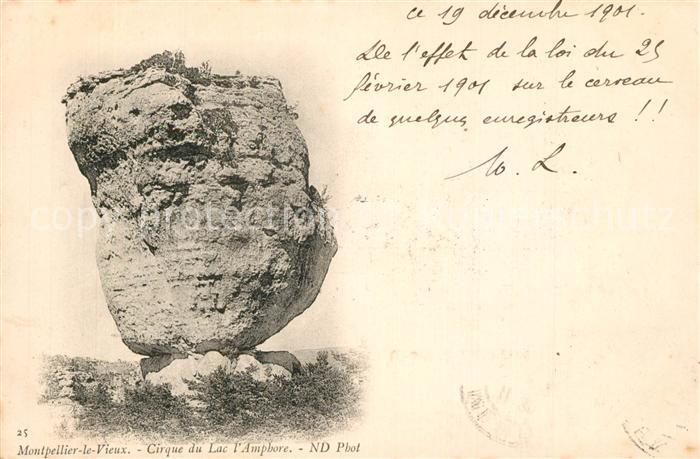 ce 19 décembre 1901.
De l'effet de la loi du 25
février 1901 sur le cerveau
de quelques enregistreurs !!
L.
25
Montpellier-le-Vieux. - Cirque du Lac l'Amphore. - ND Phot
copyright Kopierschutz